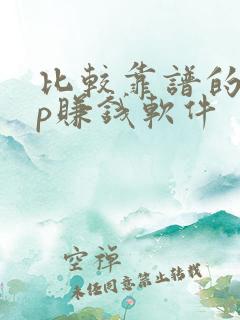 比較靠譜的
p賺錢軟件
空禪
未经同意禁止转载